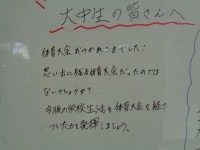 大中生の皆さんへ
体育大会おつかれさまでした！
思い出に残る体育大会だったのでは
ないでしょうか？
今後の学校生活も体育大会を経て
ついた力を発揮しましょう。